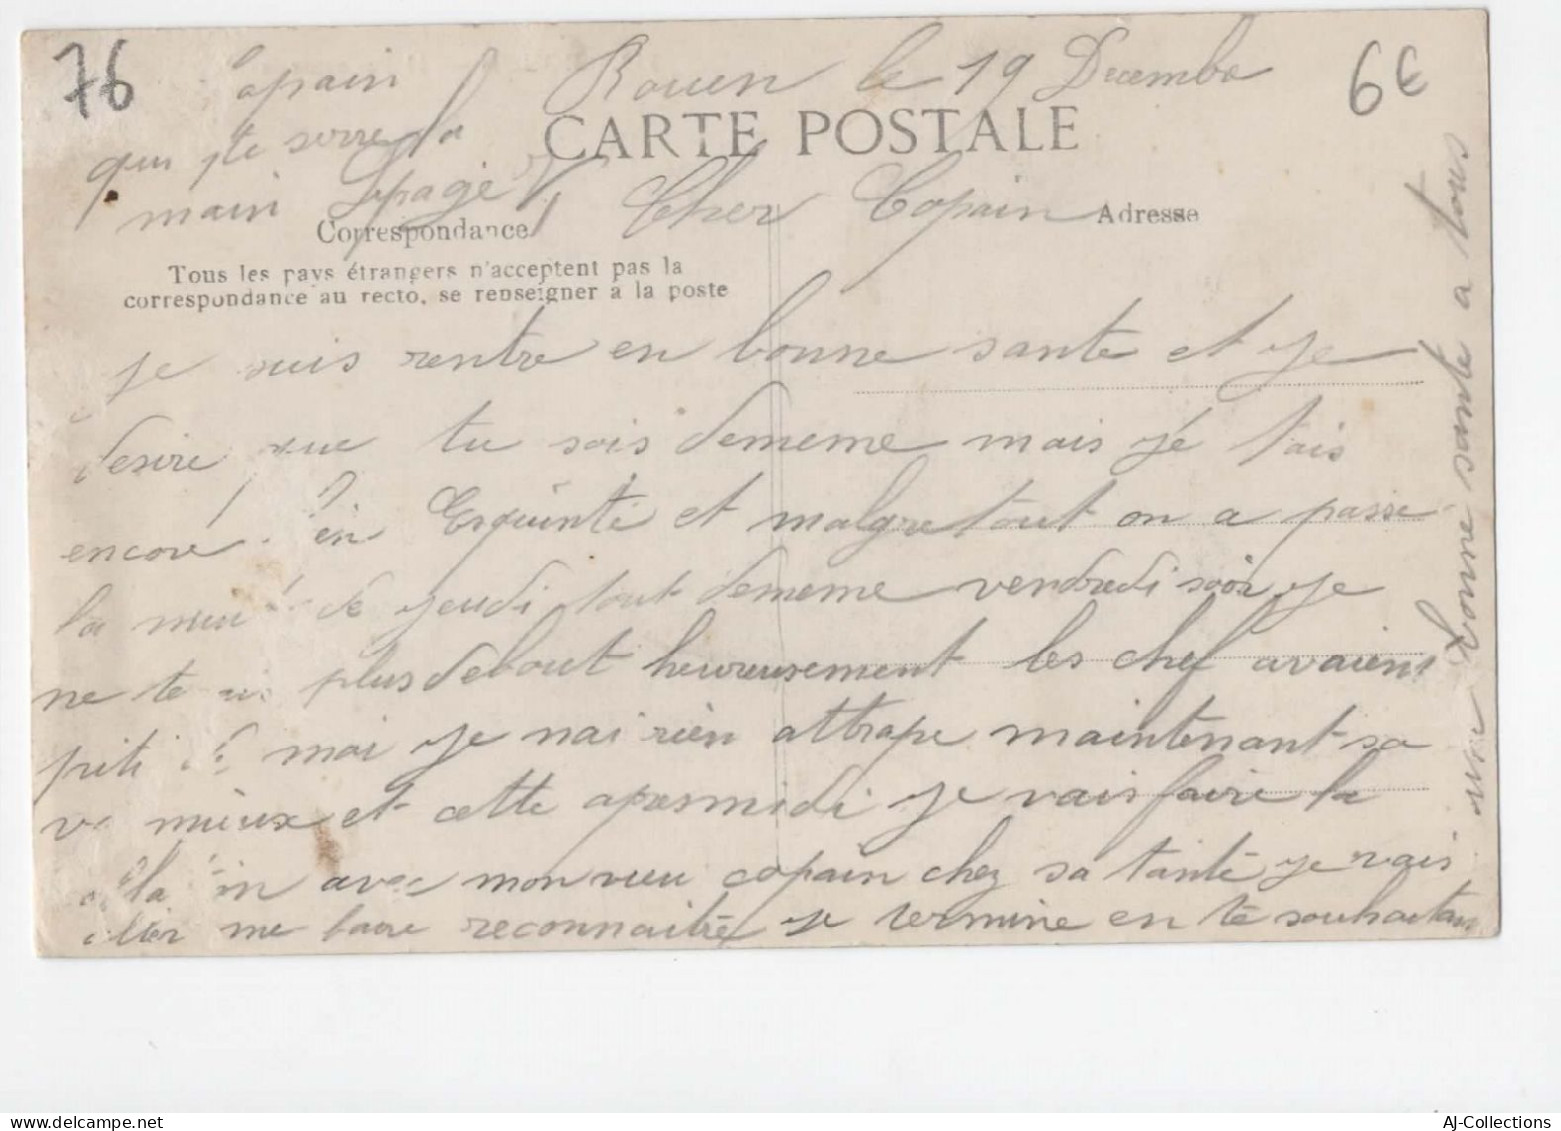 76
6€
Rouen le 19 Decembre
CARTE POSTALE
Correspondance
Adresse
Tous les pays étrangers n'acceptent pas la
correspondance au recto, se renseigner à la poste
Cher Copain
je suis rentre en bonne sante et je
desire que tu sois dememe mais je tais
encore en Esquinté et malgre tout on a passe
la de jeudi tout dememe vendredi soir je
ne te plus debout heureusement les chef avaient
moi je nai rien attrape maintenant sa
va mieux et cette apresmidi je vais faire la
avec mon vieu copain chez sa tante je vais
aller me faire reconnaitre je termine en te souhaitant
une bonne sante a tous
Copain
qui te serre la
main Lepage
AJ-Collections